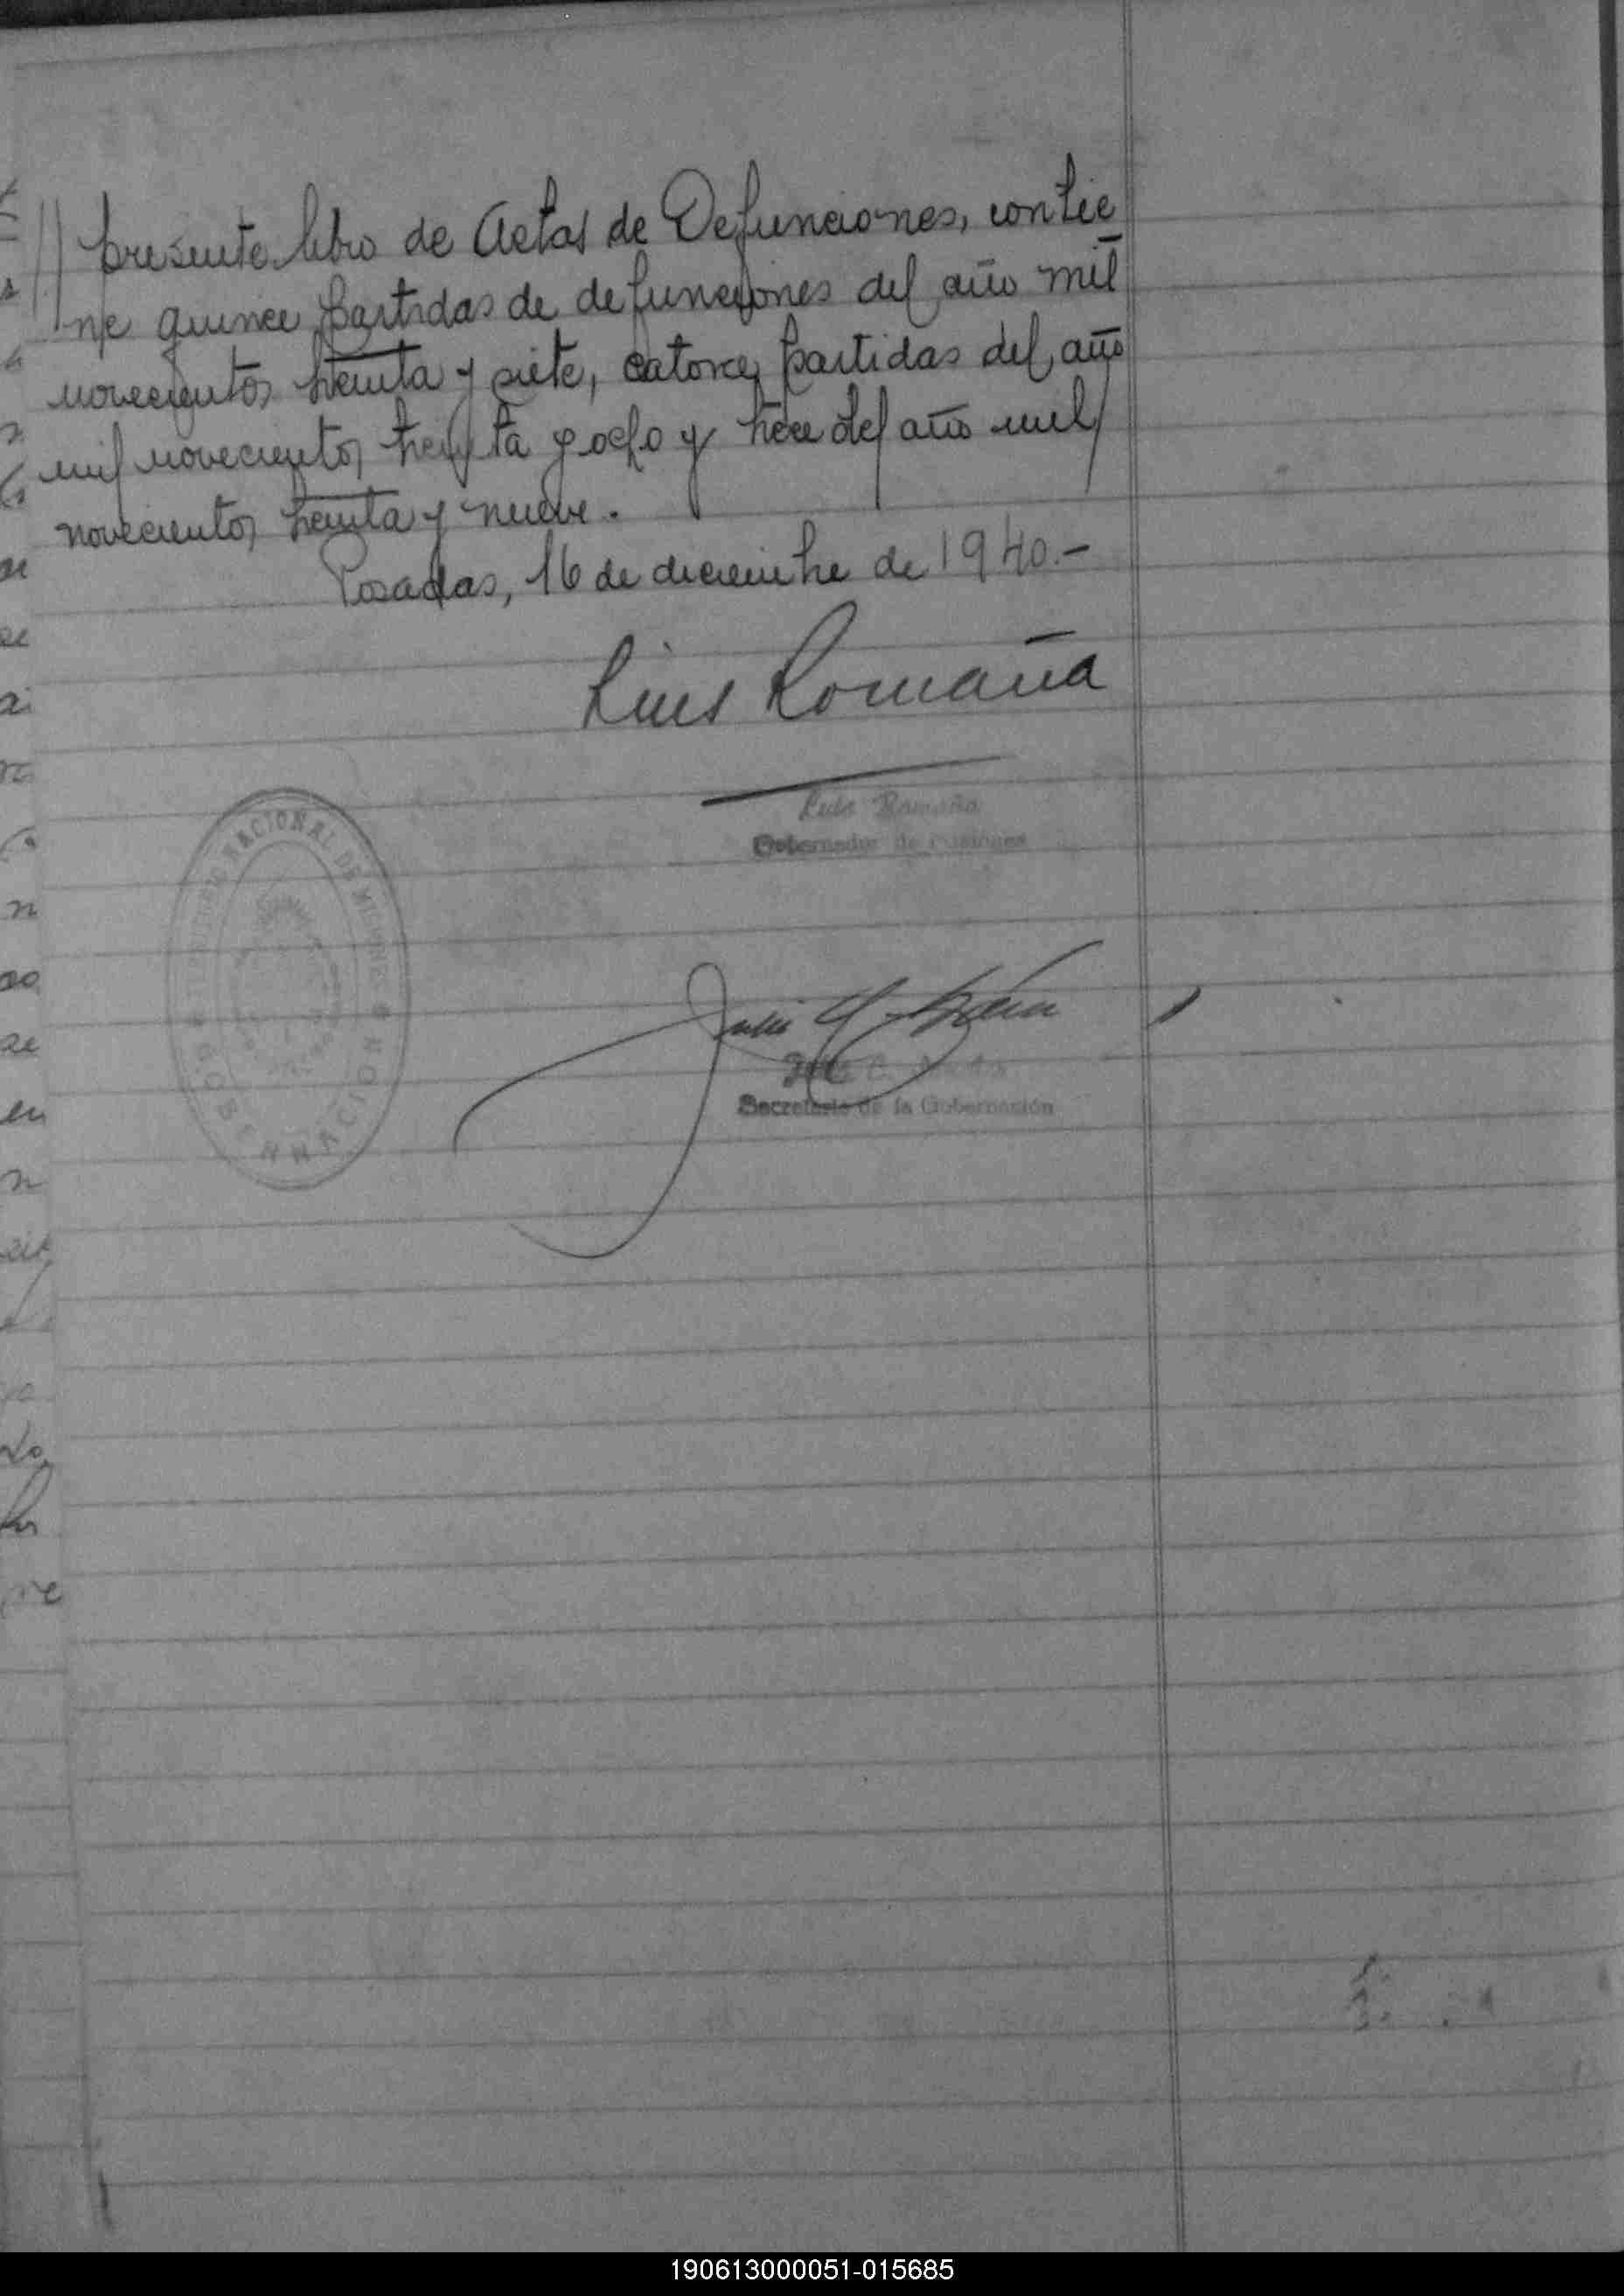 // presente libro de Actas de Defunciones, contie
ne quince partidas de defunciones del año mil
novecientos treinta y siete, catorce partidas del año
mil novecientos treinta y ocho y trece del año mil
novecientos treinta y nueve.
Posadas, 16 de diciembre de 1940.-
Luis Romaña
Luis Romaña
Gobernador de Misiones
TERRITORIO NACIONAL DE MISIONES
GOBERNACION
Julio
Secretario de la Gobernación
190613000051-015685